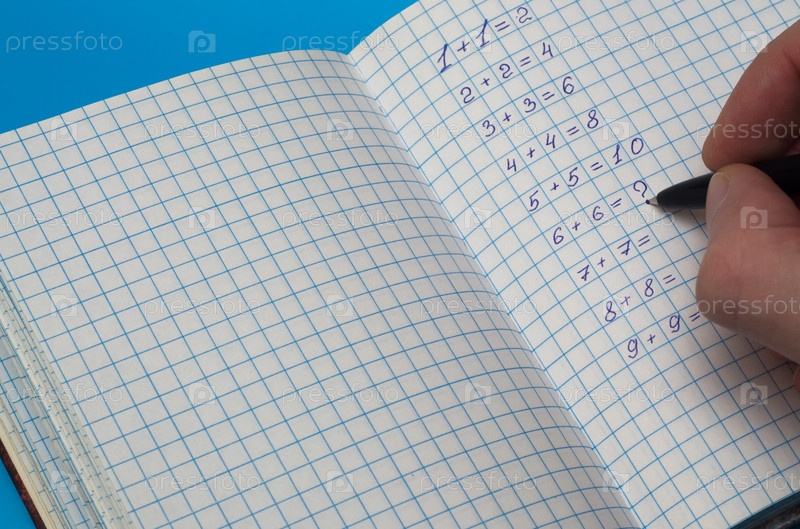 1 + 1 = 2
2 + 2 = 4
3 + 3 = 6
4 + 4 = 8
5 + 5 = 10
6 + 6 = ?
7 + 7 =
8 + 8 =
9 + 9 =
pressfoto